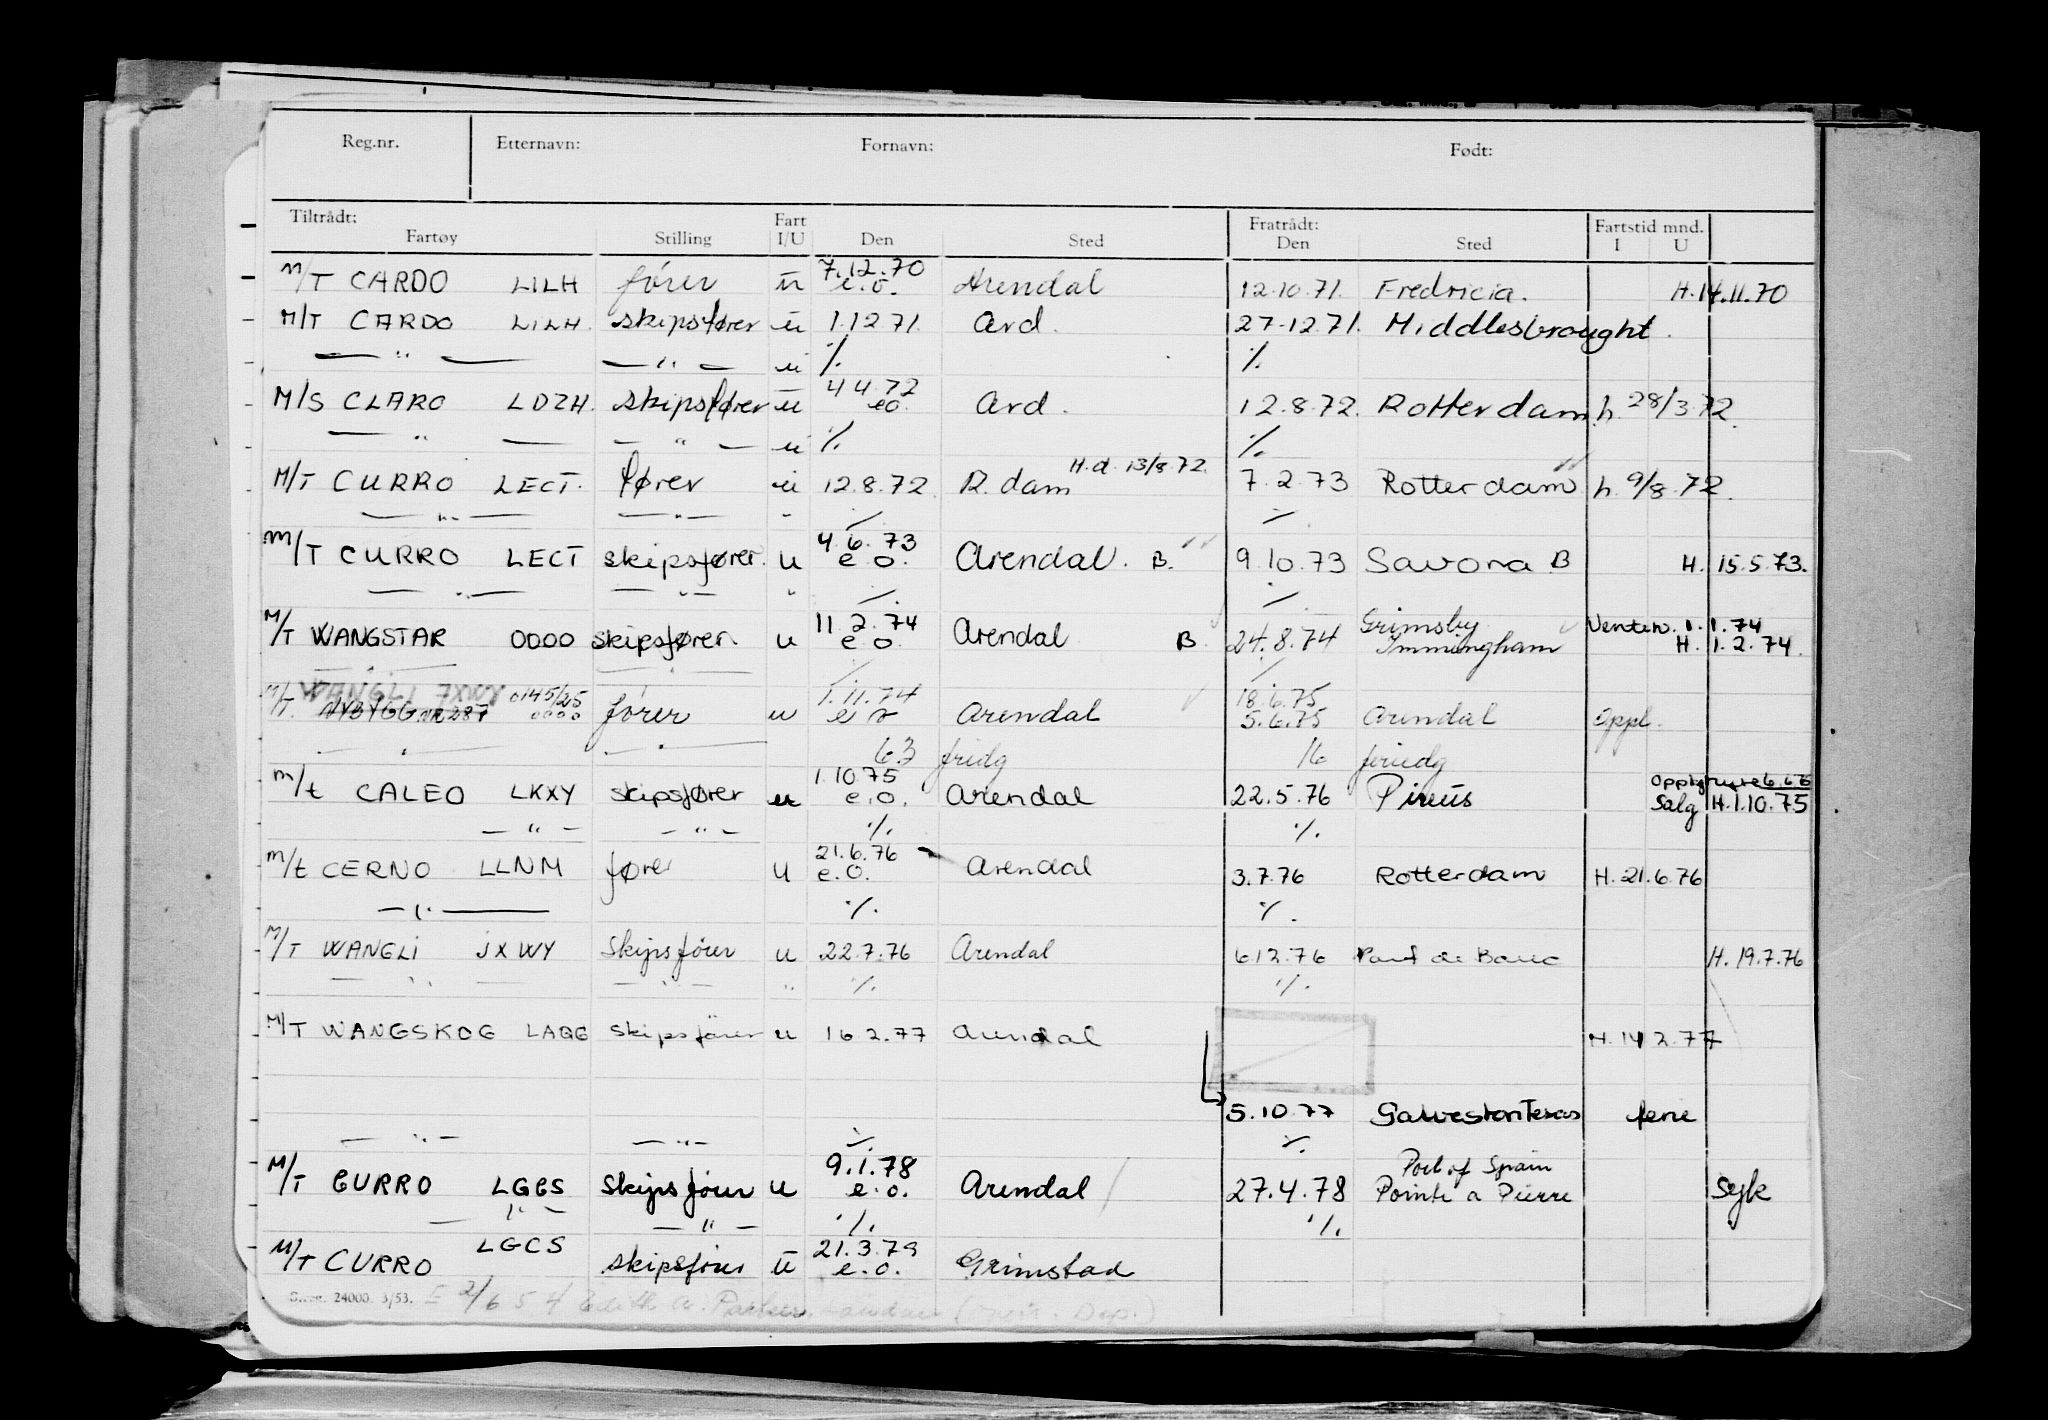 Reg.nr. Etternavn: Fornavn: Født:
Tiltrådt: Fart Fratrådt: Fartstid mnd.
Fartøy Stilling I/U Den Sted Den Sted I U
7.12.70
M/T CARDO LILH fører u e.o. Arendal 12.10.71. Fredricia. H.14.11.70
M/T CARDO LILH. skipsfører u 1.12 71. Ard. 27.12.71. Middlesbrought.
— " — — " — u % %
4 4.72
M/S CLARO LDZH. skipsfører u eo. Ard. 12.8.72. Rotterdam h. 28/3.72.
— " — — " — u % %
H.d. 13/8.72.
M/T CURRO LECT. fører u 12.8.72. R.dam 7.2.73 Rotterdam h. 9/8.72.
— " — — " — " % %
4.6.73
M/T CURRO LECT skipsfører. u e.o. Arendal. B. 9.10.73 Savona B H. 15.5.73.
— " — — " — " % %
11.2.74 Grimsby Ventew. 1.1.74
M/T WANGSTAR 0000 skipsfører. u e.o. Arendal B. 24.8.74 Immingham H. 1.2.74.
— " — — " — % %
WANGLI 7XWY 0145/25 1.11.74 18.6.75
M/T. NYBYGG NR 287 0000 fører u e o Arendal 5.6.75 Arendal Oppl.
— " — — " — 63 fridg 16 feriedg
1.10.75
M/t CALEO LKXY skipsfører u e.o. Arendal 22.5.76 Pireus Salg H.1.10.75
— " — — " — % %
21.6.76
M/t CERNO LLNM fører u e.o. Arendal 3.7.76 Rotterdam H. 21.6.76
— " — % %
M/T WANGLI JXWY Skipsfører u 22.7.76 Arendal 6.12.76 Port de Bouc H. 19.7.76
— " — — " — " % %
M/T WANGSKOG LAQG skipsfører u 16.2.77 Arendal H. 14 2.77
5.10.77 Galveston Texas ferie
— " — — " — % %
9.1.78 Port of Spain
M/T CURRO LGCS Skipsfører u e.o. Arendal 27.4.78 Pointe a Pierre Syk
— " — — " — % %
LGCS 21.3.79
M/T CURRO skipsfører u e.o. Grimstad
24000. 3/53. E 2/6 54 Edith A.